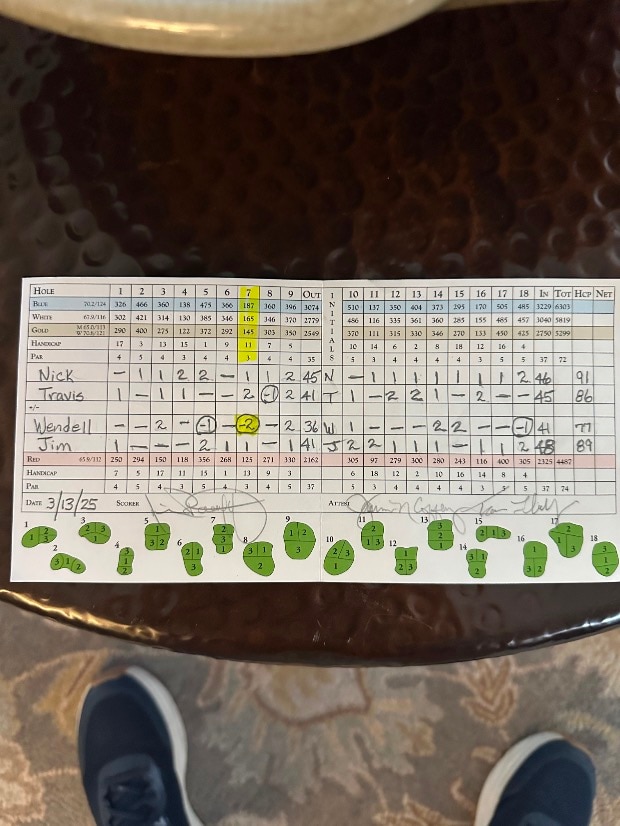 HOLE 1 2 3 4 5 6 7 8 9 OUT INITIALS 10 11 12 13 14 15 16 17 18 IN TOT HCP NET
BLUE 70.2/124 326 466 360 138 475 366 187 360 396 3074 510 137 350 404 373 295 170 505 485 3229 6303
WHITE 67.9/116 302 421 314 130 385 346 165 346 370 2779 486 116 335 361 360 285 155 485 457 3040 5819
GOLD M 65.0/113 W 70.6/121 290 400 275 122 372 292 145 303 350 2549 370 111 315 330 346 270 133 450 425 2750 5299
HANDICAP 17 3 13 15 1 9 11 7 5 10 14 6 2 8 18 12 16 4
PAR 4 5 4 3 4 4 3 4 4 35 5 3 4 4 4 4 3 5 5 37 72
Nick - 1 1 2 2 - 1 1 2 45 N - 1 1 1 1 1 1 1 2 46 91
Travis 1 - 1 1 - - 2 -1 2 41 T 1 - 2 2 1 - 2 - - 45 86
+/-
Wendell - - 2 - -1 - -2 - 2 36 W 1 - - - 2 2 - - -1 41 77
Jim 1 - - - 2 1 1 - 1 41 J 2 2 1 1 1 - 1 1 2 48 89
RED 65.9/112 250 294 150 118 356 268 125 271 330 2162 305 97 279 300 280 243 116 400 305 2325 4487
HANDICAP 7 5 17 11 15 1 13 9 3 6 18 12 2 10 16 14 8 4
PAR 4 5 4 3 5 4 3 4 5 37 5 3 4 4 4 4 3 5 5 37 74
DATE 3/13/25 SCORER ATTEST
1 3 5 7 9 11 13 15 17
2 4 6 8 10 12 14 16 18